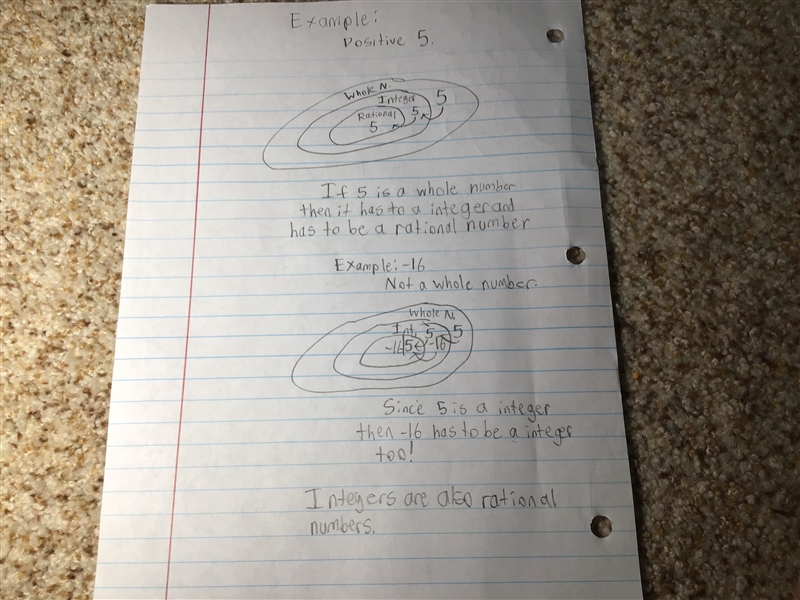 Example:
Positive 5.
Whole N.
Integer 5
Rational 5
5
If 5 is a whole number
then it has to a integer and
has to be a rational number
Example: -16
Not a whole number.
Whole N.
Int. 5 5
-16 5 -16
Since 5 is a integer
then -16 has to be a integer
too!
Integers are also rational
numbers.